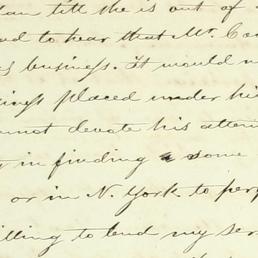 till the is out of
to hear that Mr.
business. It would
placed under his
not devote his
in finding a some
or in N. York to
to lend my